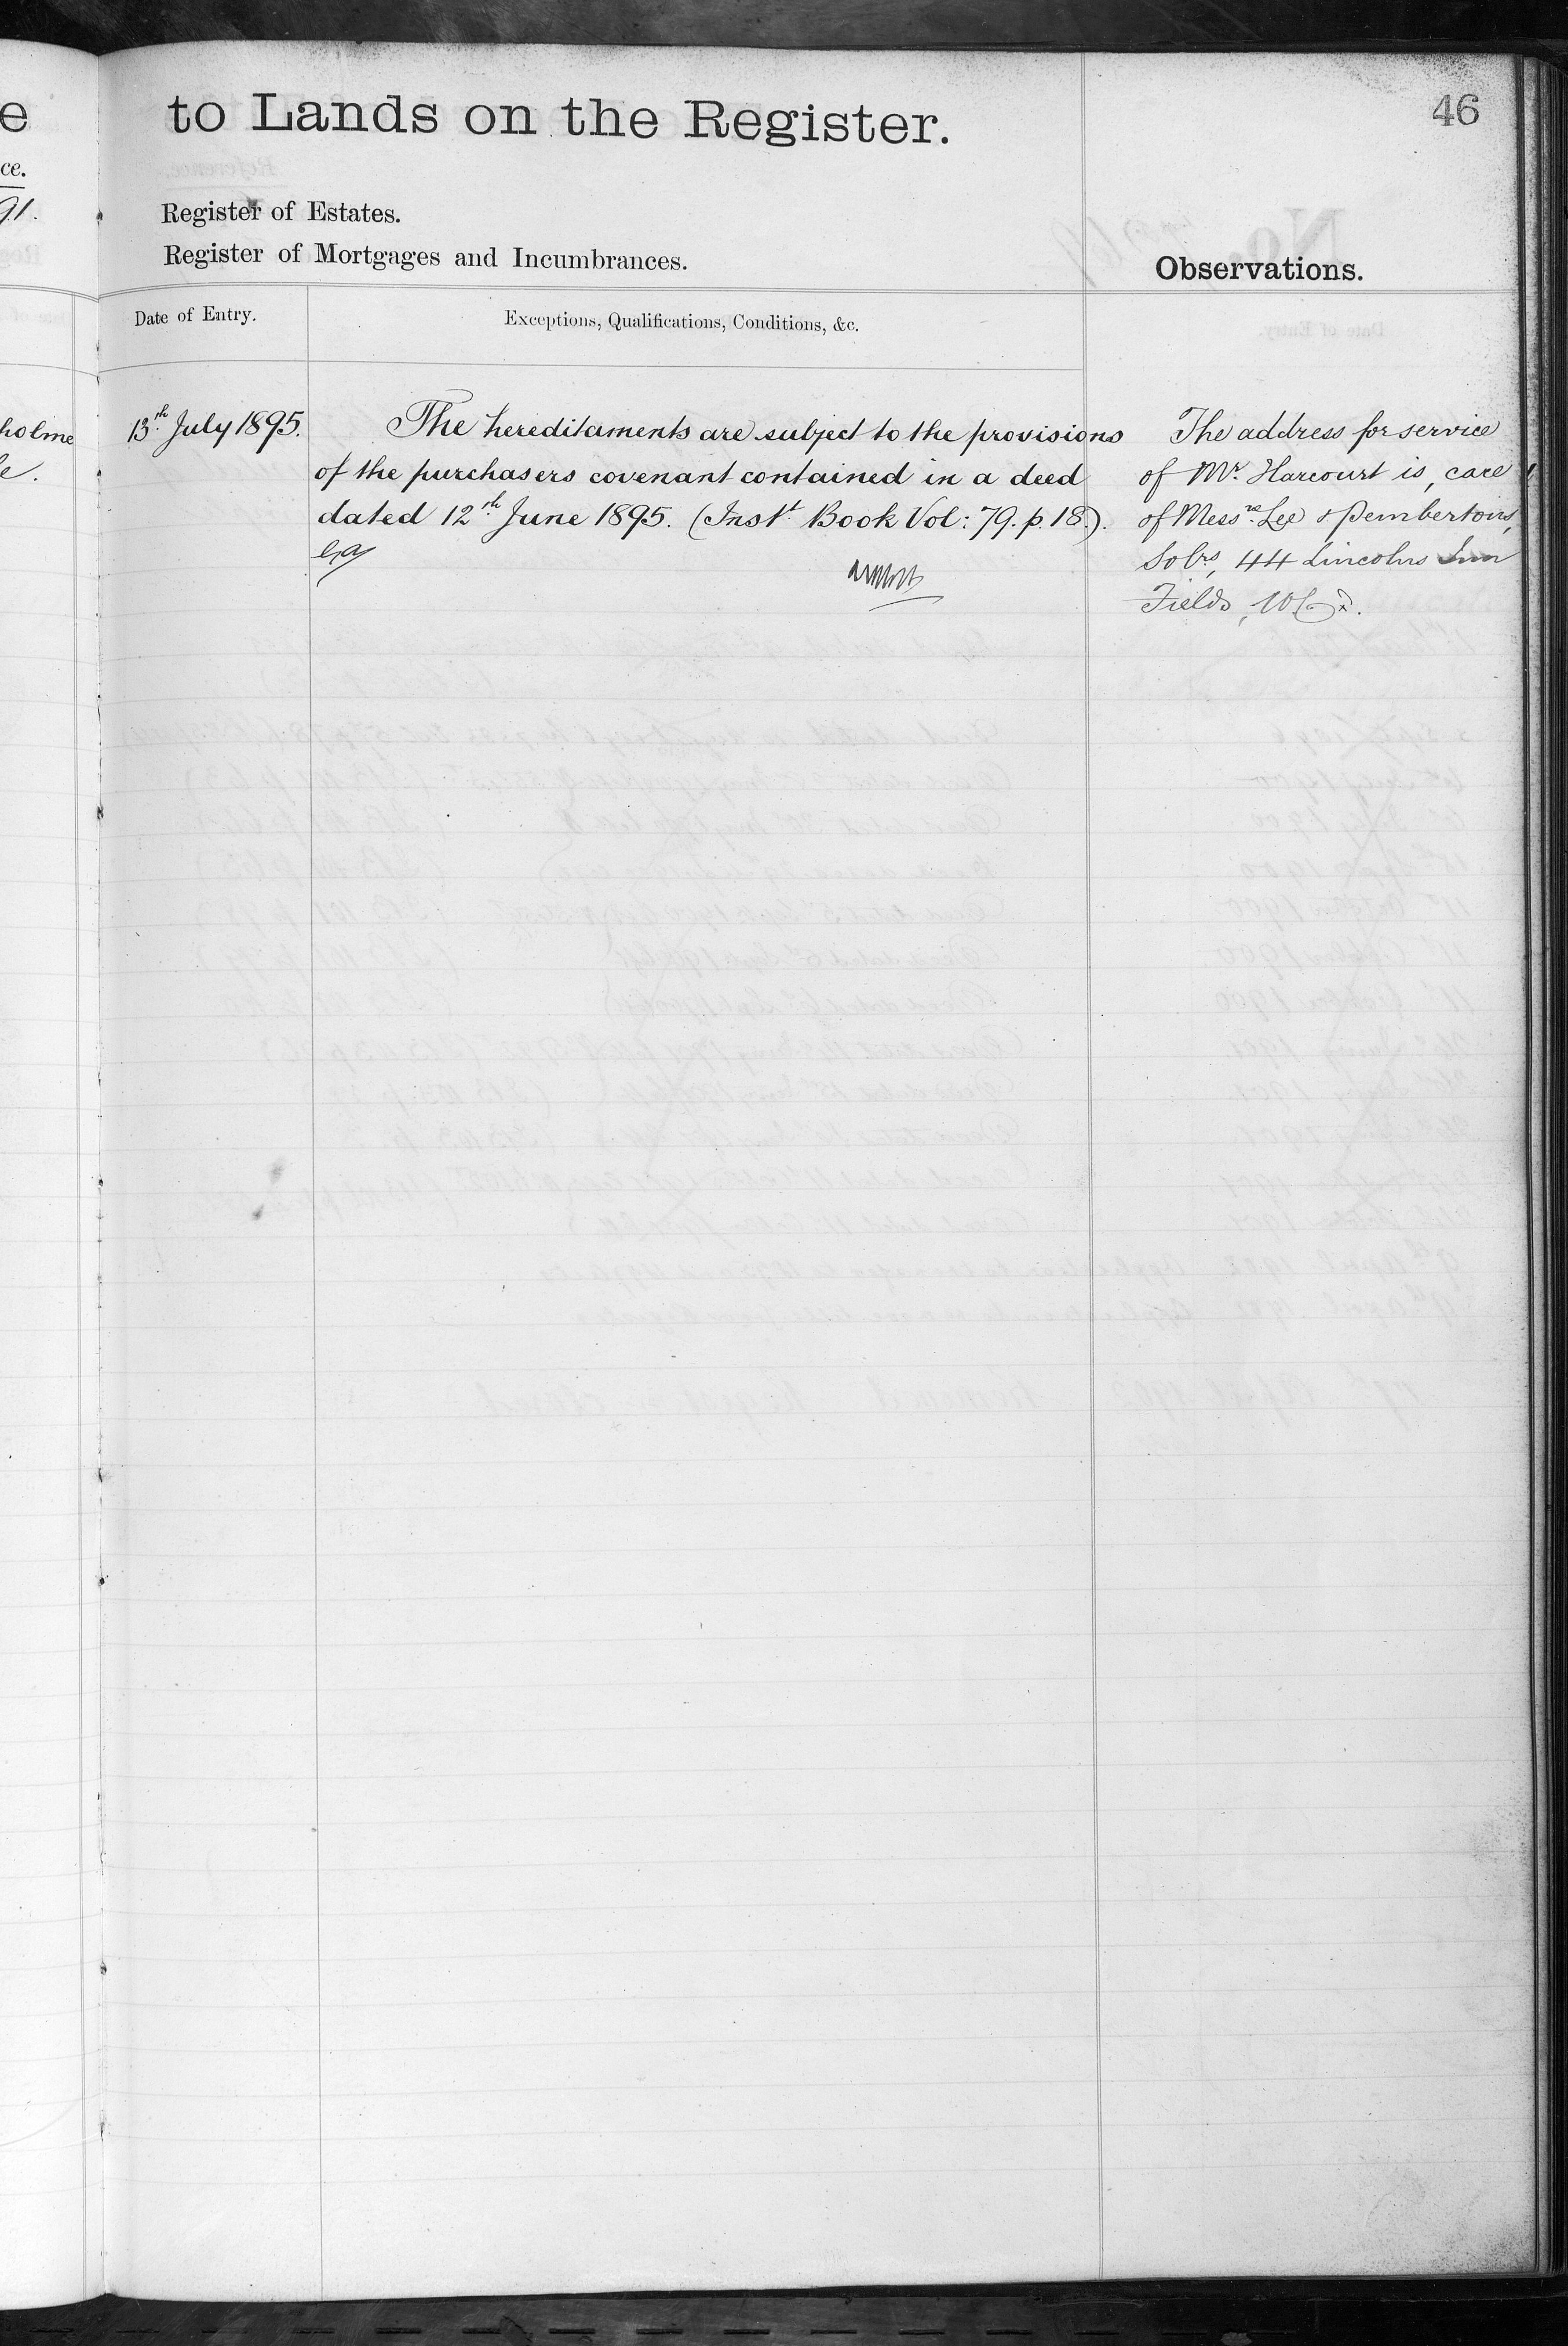 e
to Lands on the Register.
46
ce.
91.
Register of Estates.
Register of Mortgages and Incumbrances.
Observations.
Date of Entry.
Exceptions, Qualifications, Conditions, &c.
holme
13th July 1895.
The hereditaments are subject to the provisions
of the purchasers covenant contained in a deed
dated 12th June 1895. (Inst. Book Vol: 79. p. 18.).
The address for service
of Mr. Harcourt is, care
of Messrs. Lee & Pembertons,
Solrs, 44 Lincolns Inn
Fields, W.C.